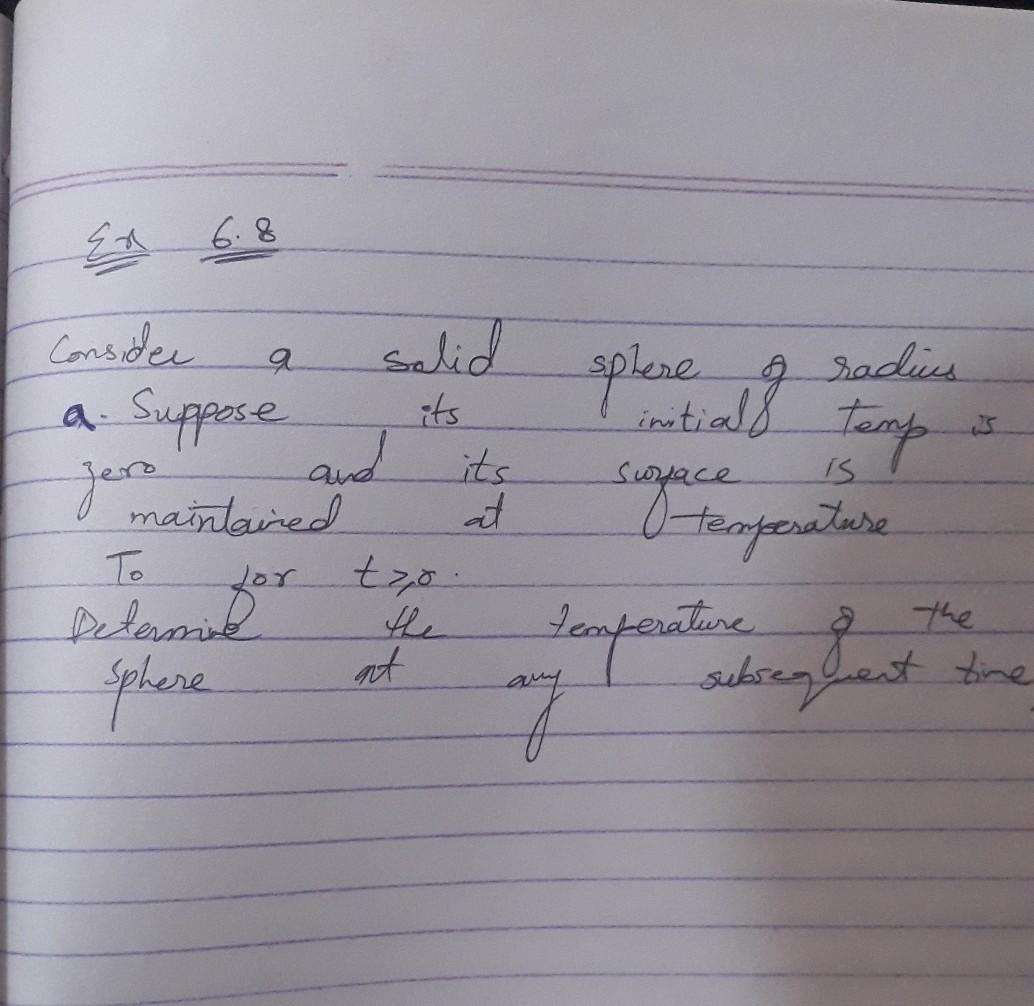 Ex 6.8
Consider a solid sphere of radius
a. Suppose its initial temp is
zero and its surface is
maintained at temperature
To for t≥0.
Determine the temperature of the
sphere at any subsequent time